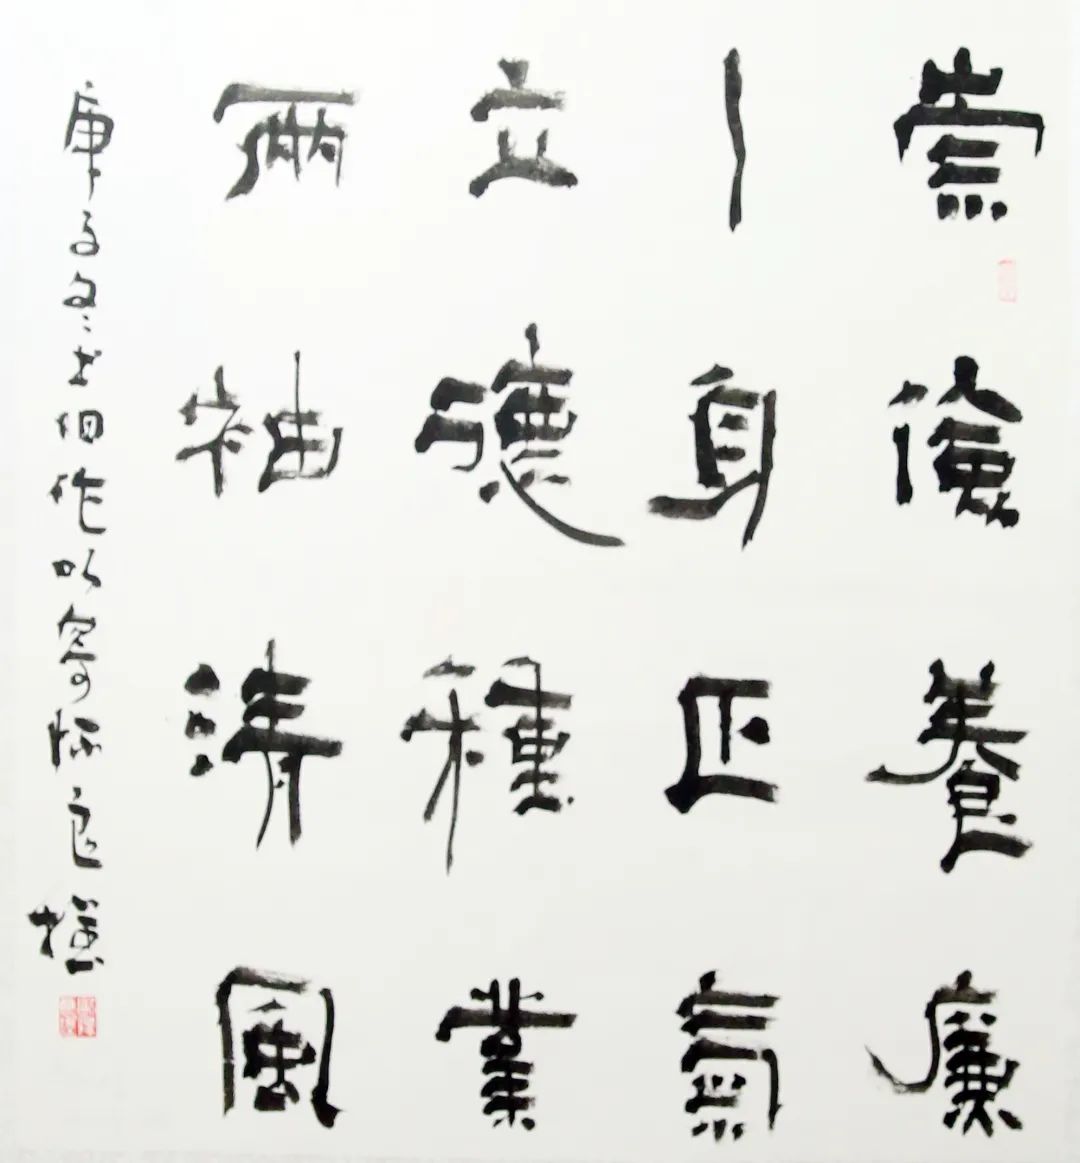 崇儉養廉
一身正氣
立德種業
兩袖清風
庚子冬书旧作以寄怀良